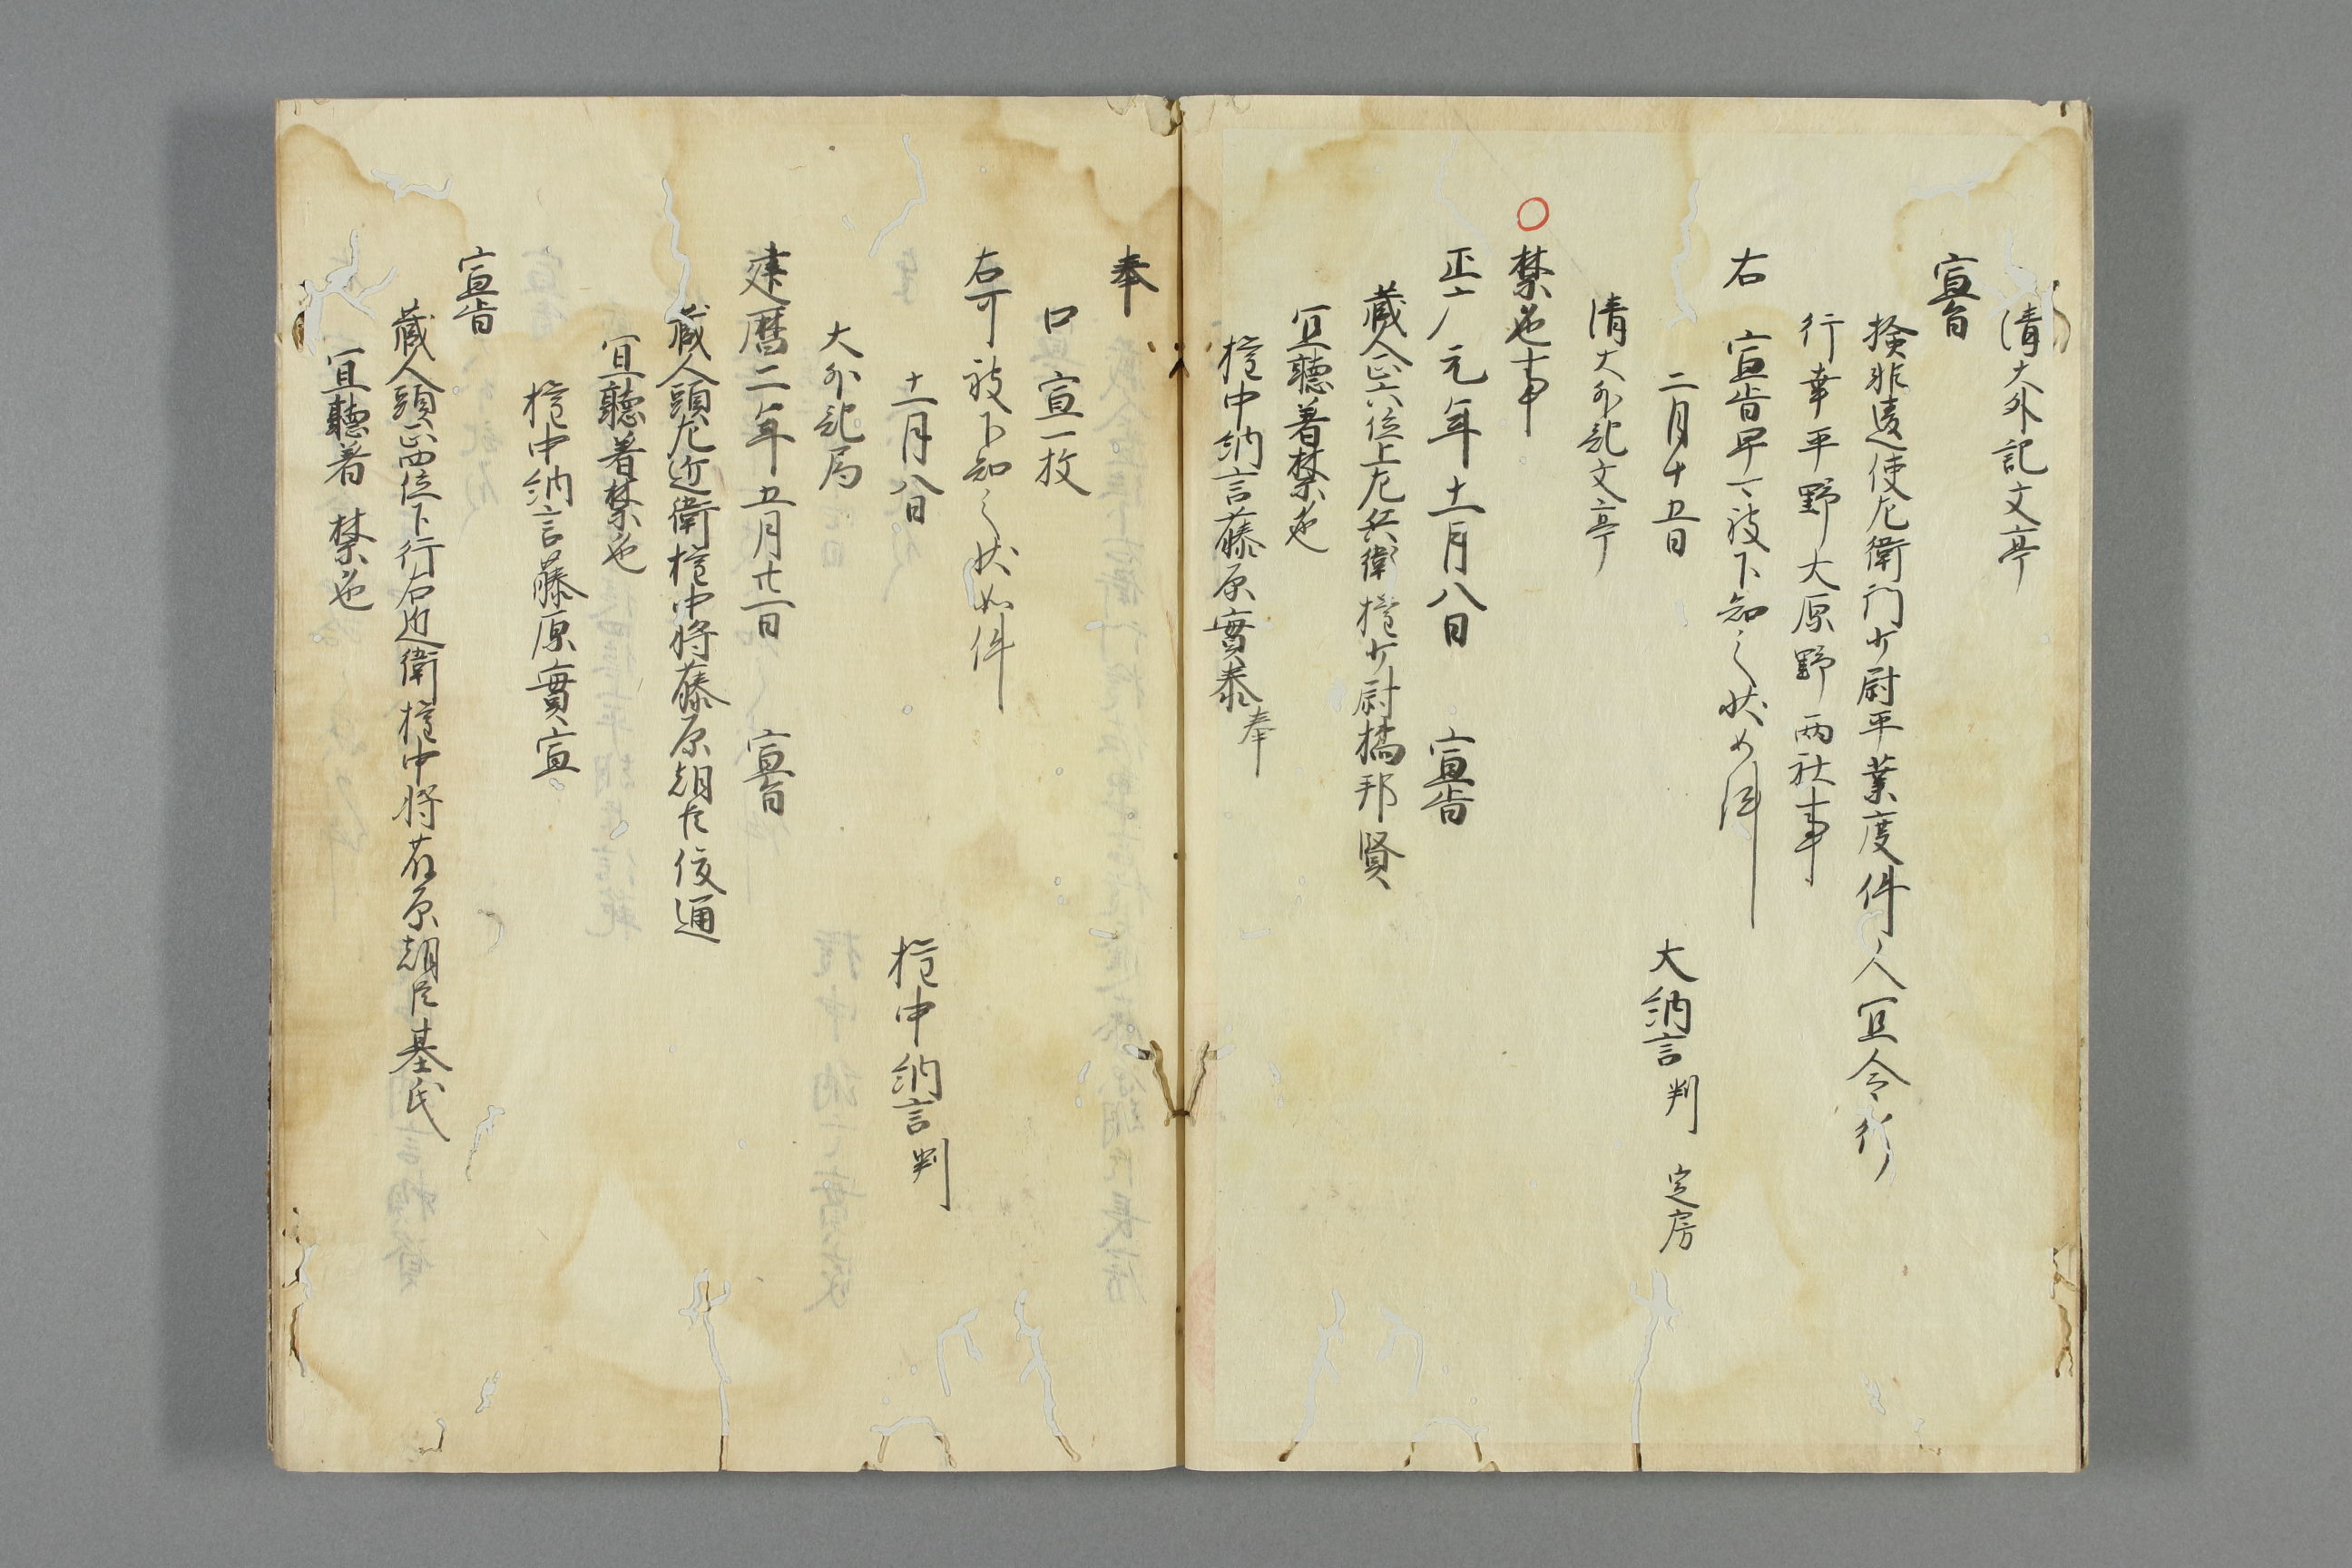 清大外記文亭
宣旨
檢非違使左衛門少尉平業度件人宜令行
行幸平野大原野兩社事
右　宣旨早可被下知之狀如件
二月十五日　大納言判　定房
清大外記文亭
禁色事
正六元年十一月八日　宣旨
蔵人正六位上左兵衛權少尉橘邦賢
宜聽著禁色
權中納言藤原實泰奉
奉
口宣一枚
右可被下知之状如件
十一月八日　權中納言判
大外記局
建暦二年五月廿一日　宣旨
蔵人頭左近衛權中将藤原朝臣俊通
宜聽著禁色
權中納言藤原實宣
宣旨
蔵人頭正四位下行右近衛權中将藤原朝臣基氏
宜聽著禁色